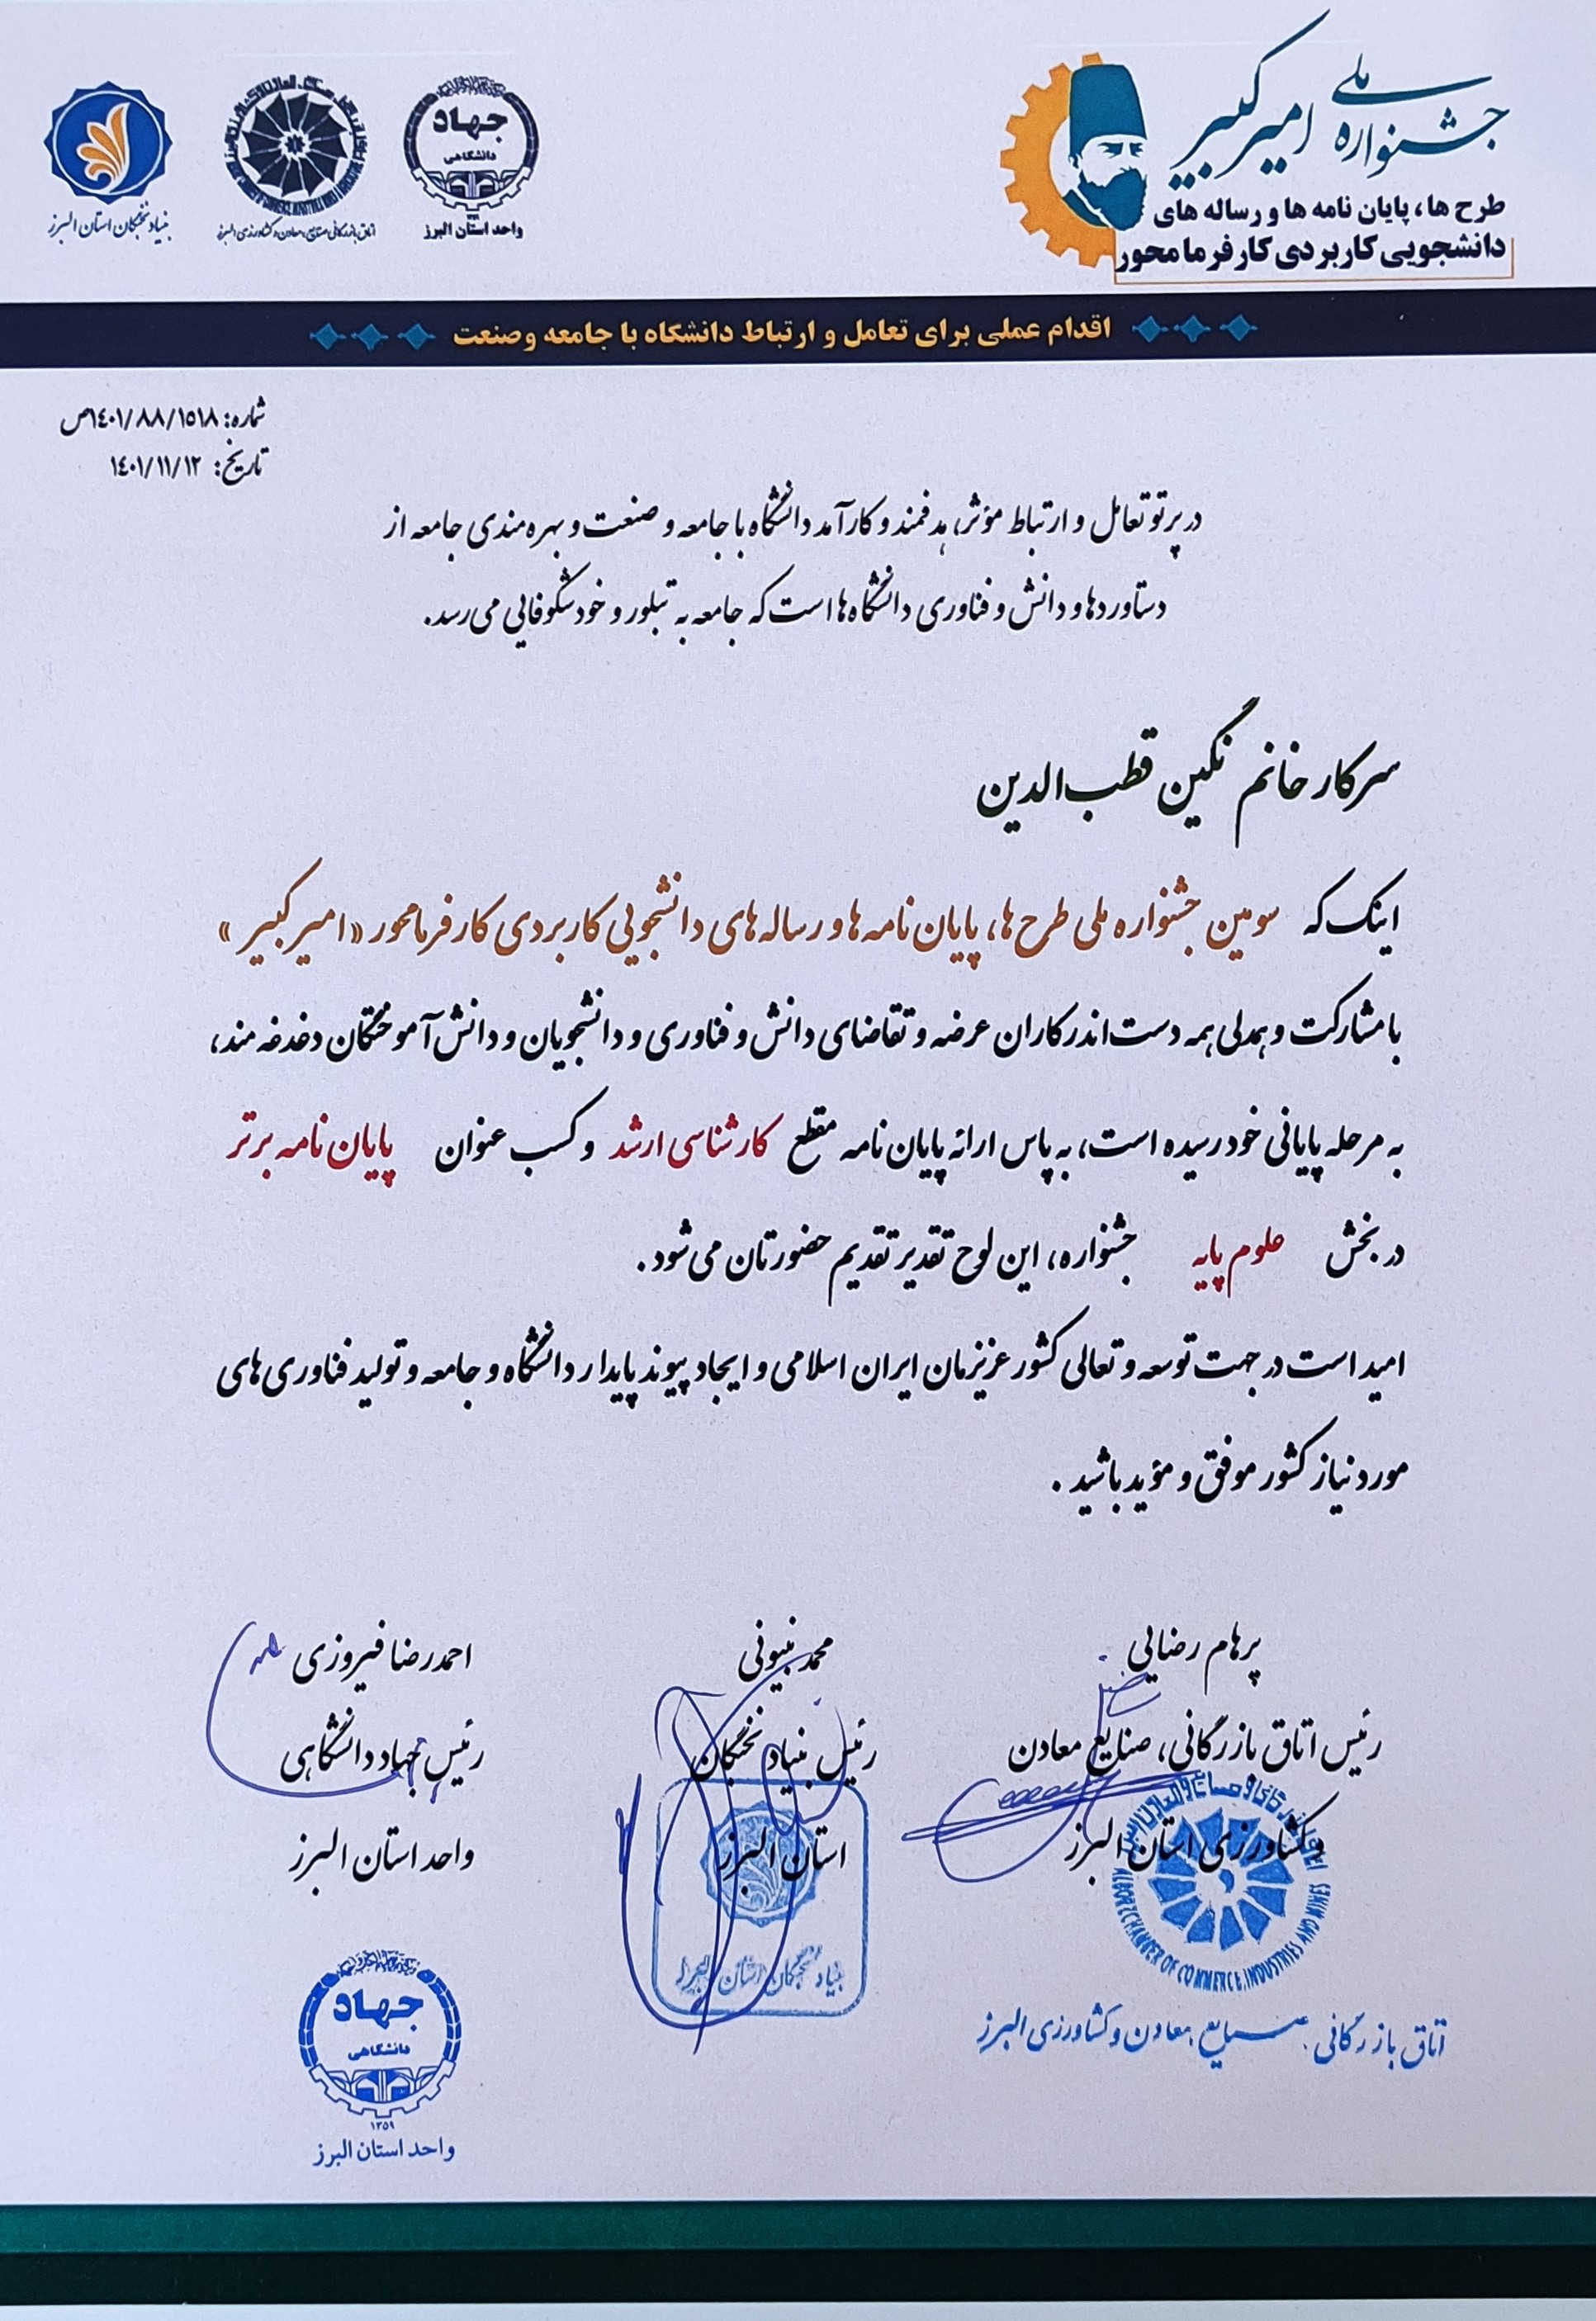 جشنواره ملی امیرکبیر
طرح ها، پایان نامه ها و رساله های
دانشجویی کاربردی کارفرما محور
جهاد
دانشگاهی
واحد استان البرز
اتاق بازرگانی صنایع، معادن و کشاورزی البرز
بنیاد نخبگان استان البرز
اقدام عملی برای تعامل و ارتباط دانشگاه با جامعه و صنعت
شماره: ۱۴۰۱/۸۸/۱۵۱۸ص
تاریخ: ۱۴۰۱/۱۱/۱۲
در پرتو تعامل و ارتباط مؤثر، هدفمند و کارآمد دانشگاه با جامعه و صنعت و بهره مندی جامعه از
دستاوردها و دانش و فناوری دانشگاه ها است که جامعه به تبلور و خودشکوفایی می رسد.
سرکار خانم نگین قطب الدین
اینک که سومین جشنواره ملی طرح ها، پایان نامه ها و رساله های دانشجویی کاربردی کارفرما محور «امیرکبیر»
با مشارکت و همدلی همه دست اندرکاران عرضه و تقاضای دانش و فناوری و دانشجویان و دانش آموختگان دغدغه مند،
به مرحله پایانی خود رسیده است، به پاس ارائه پایان نامه مقطع کارشناسی ارشد و کسب عنوان پایان نامه برتر
در بخش علوم پایه جشنواره، این لوح تقدیر تقدیم حضورتان می شود.
امید است در جهت توسعه و تعالی کشور عزیزمان ایران اسلامی و ایجاد پیوند پایدار دانشگاه و جامعه و تولید فناوری های
مورد نیاز کشور موفق و مؤید باشید.
پرهام رضایی
رئیس اتاق بازرگانی، صنایع معادن
و کشاورزی استان البرز
محمد نبیونی
رئیس بنیاد نخبگان
استان البرز
احمدرضا فیروزی
رئیس جهاد دانشگاهی
واحد استان البرز
ALBORZ CHAMBER OF COMMERCE, INDUSTRIES AND MINES
اتاق بازرگانی، صنایع، معادن و کشاورزی البرز
بنیاد نخبگان استان البرز
جهاد
دانشگاهی
۱۳۵۹
واحد استان البرز